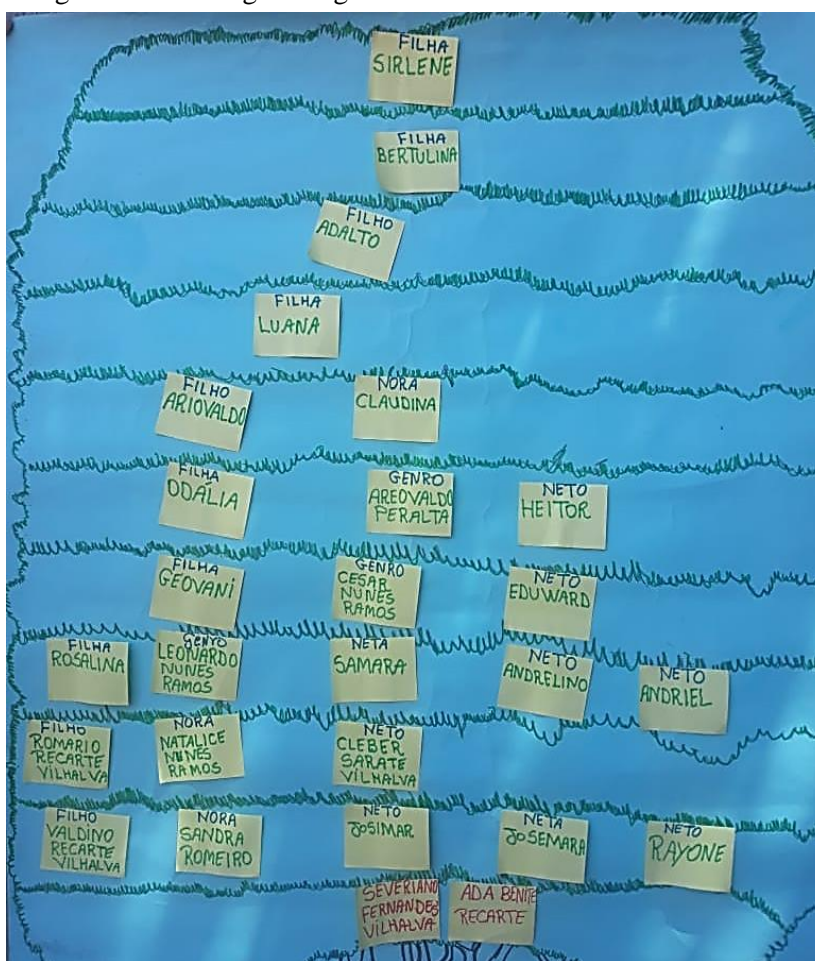 FILHA
SIRLENE
FILHA
BERTULINA
FILHO
ADALTO
FILHA
LUANA
FILHO
ARIOVALDO
NORA
CLAUDINA
FILHA
ODALIA
GENRO
AREOVALDO
PERALTA
NETO
HEITOR
FILHA
GEOVANi
GENRO
CESAR
NUNES
RAMOS
NETO
EDUWARD
FILHA
ROSALINA
GENRO
LEONARDO
NUNES
RAMOS
NETA
SAMARA
NETO
ANDRELINO
NETO
ANDRIEL
FILHO
ROMARIO
RECARTE
VILHALVA
NORA
NATALICE
NUNES
RAMOS
NETO
CLEBER
SARATE
VILHALVA
FILHO
VALDINO
RECARTE
VILHALVA
NORA
SANDRA
ROMEIRO
NETO
JOSIMAR
NETA
JOSEMARA
NETO
RAYONE
SEVERIANO
FERNANDES
VILHALVA
ADA BENITE
RECARTE